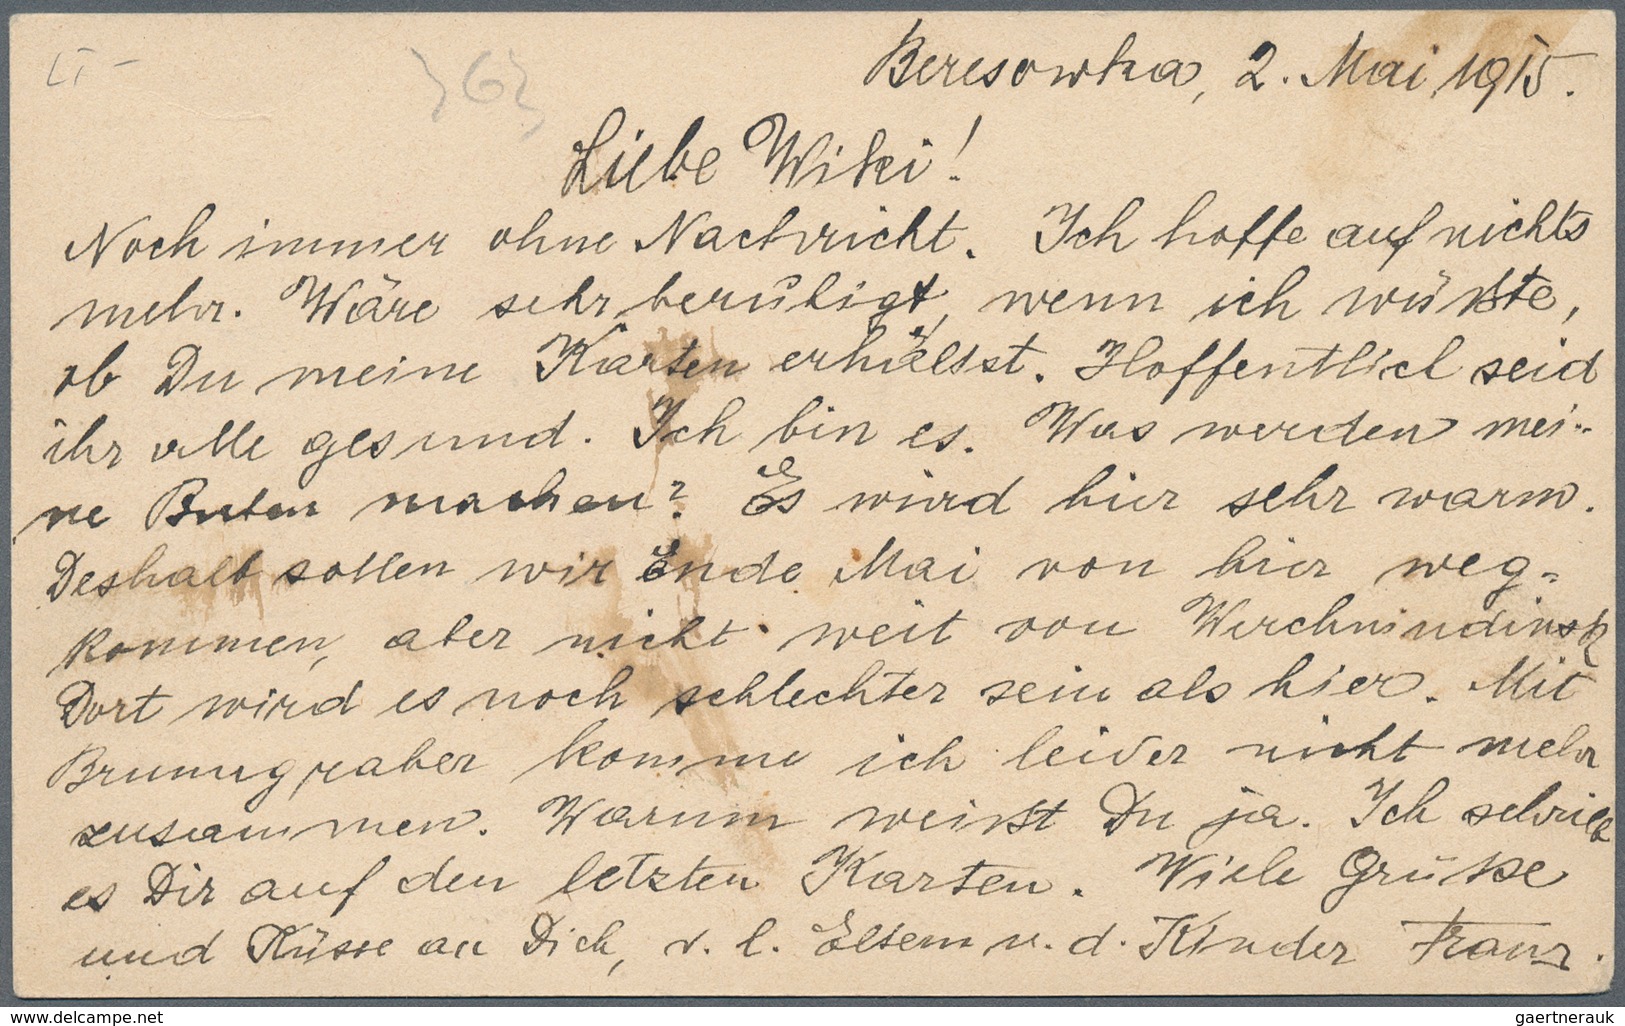 Beresowka, 2. Mai 1915.
Liebe Wiki!
Noch immer ohne Nachricht. Ich hoffe auf nichts
mehr. Wäre sehr beruhigt, wenn ich wüßte,
ob Du meine Karten erhältst. Hoffentlich seid
ihr alle gesund. Ich bin es. Was werden mei-
ne machen? Es wird hier sehr warm.
Deshalb sollen wir Ende Mai von hier weg-
kommen, aber nicht weit von Werchnindinsk
Dort wird es noch schlechter sein als hier. Mit
komme ich leider nicht mehr
zusammen. Warum weißt Du ja. Ich schrieb
es Dir auf den letzten Karten. Viele Grüße
und Küsse an Dich, d. l. Eltern u. d. Kinder Franz.
www.delcampe.net
gaertnerauk